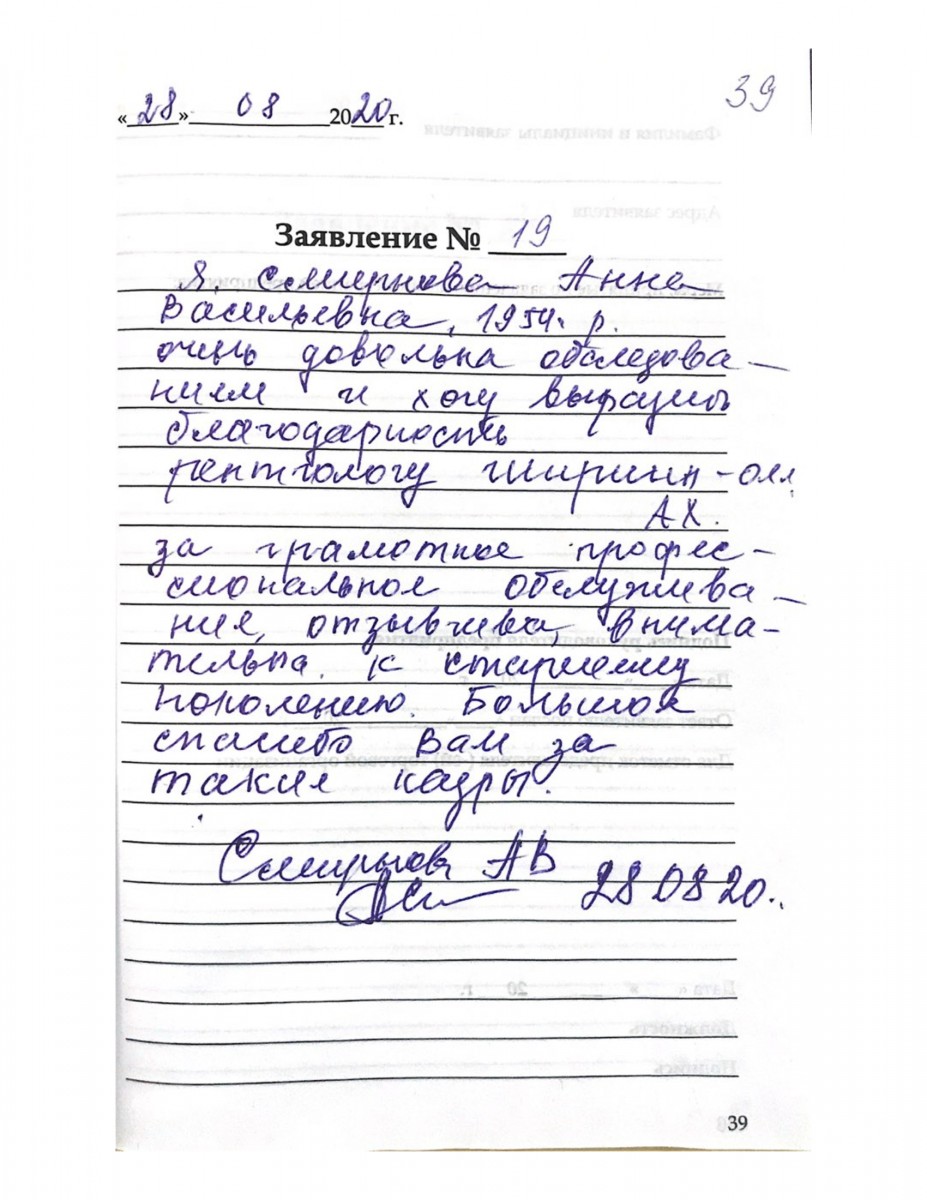 39
«28» 08 2020 г.
Заявление № 19
Я, Смирнова Анна
Васильевна, 1954 г. р.
очень довольна обследова-
нием и хочу выразить
благодарность
рентгологу Ширшин-
А Х.
за грамотное профес-
сиональное обслужива-
ния, отзывчива, внима-
тельна к старшему
поколению. Большое
спасибо Вам за
такие кадры.
Смирнова АВ
28 08 20.
39